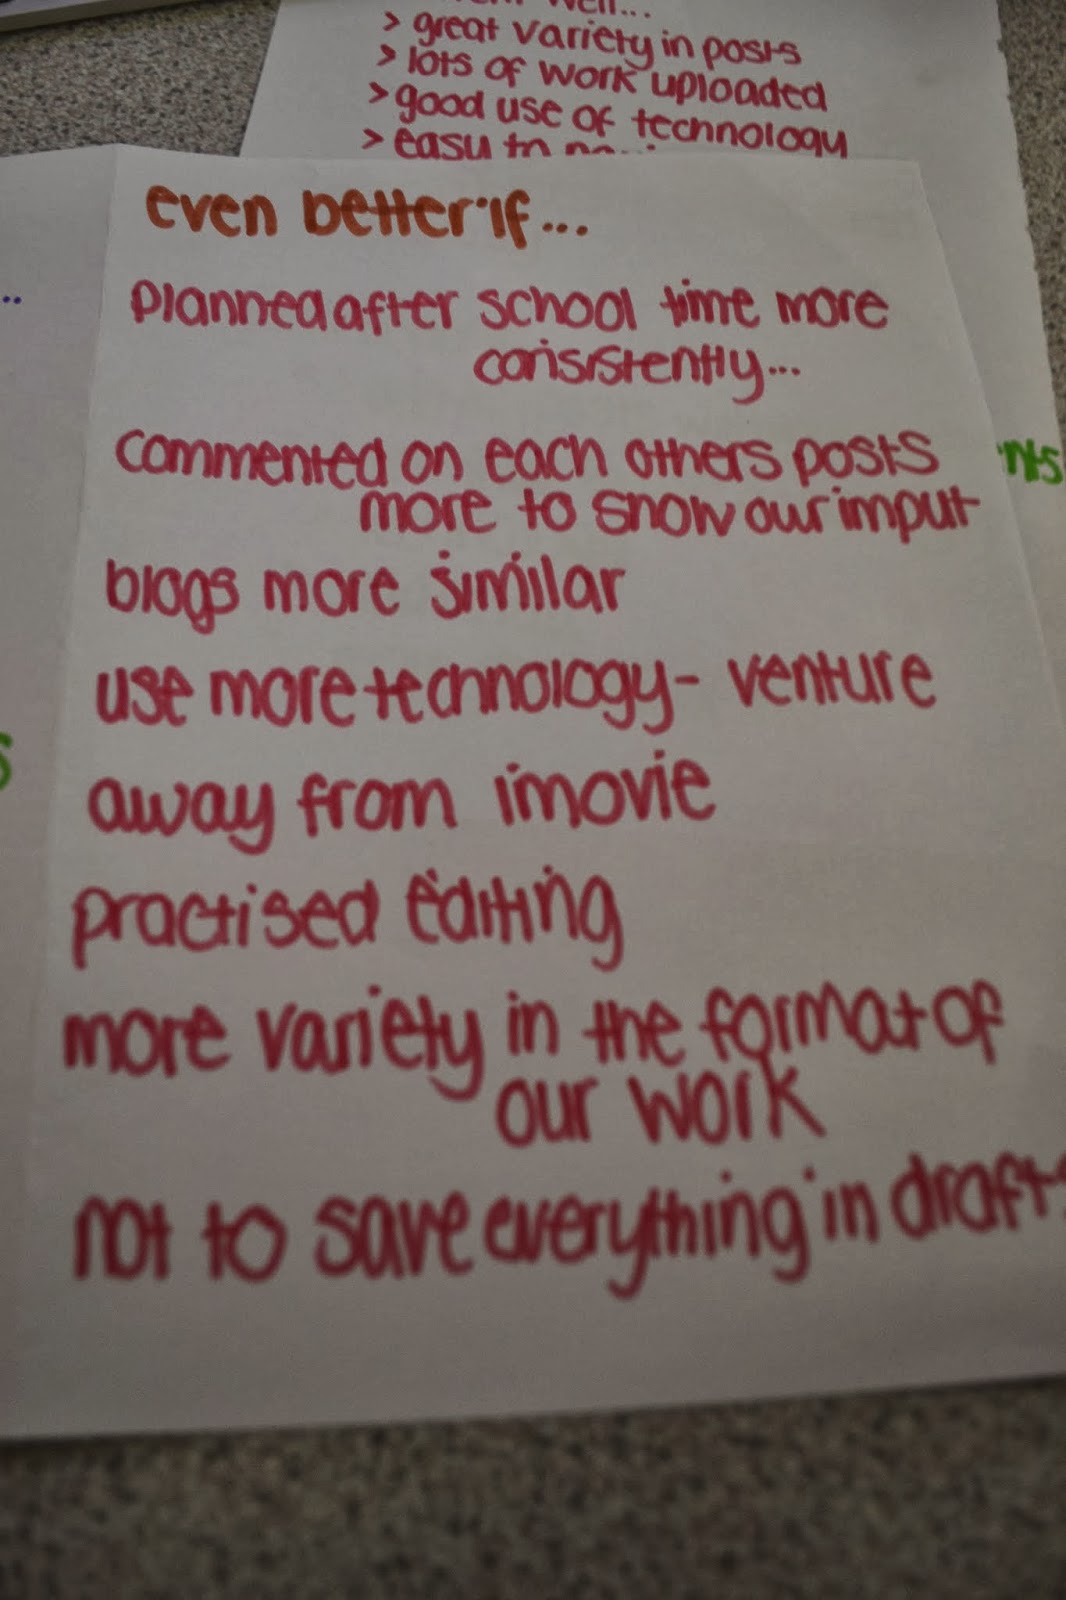 well...
> great variety in posts
> lots of work uploaded
> good use of technology
> easy to
even better if...
planned after school time more
consistently...
commented on each others posts
more to show our imput
blogs more similar
use more technology - venture
away from imovie
practised editing
more variety in the format of
our work
not to save everything in drafts